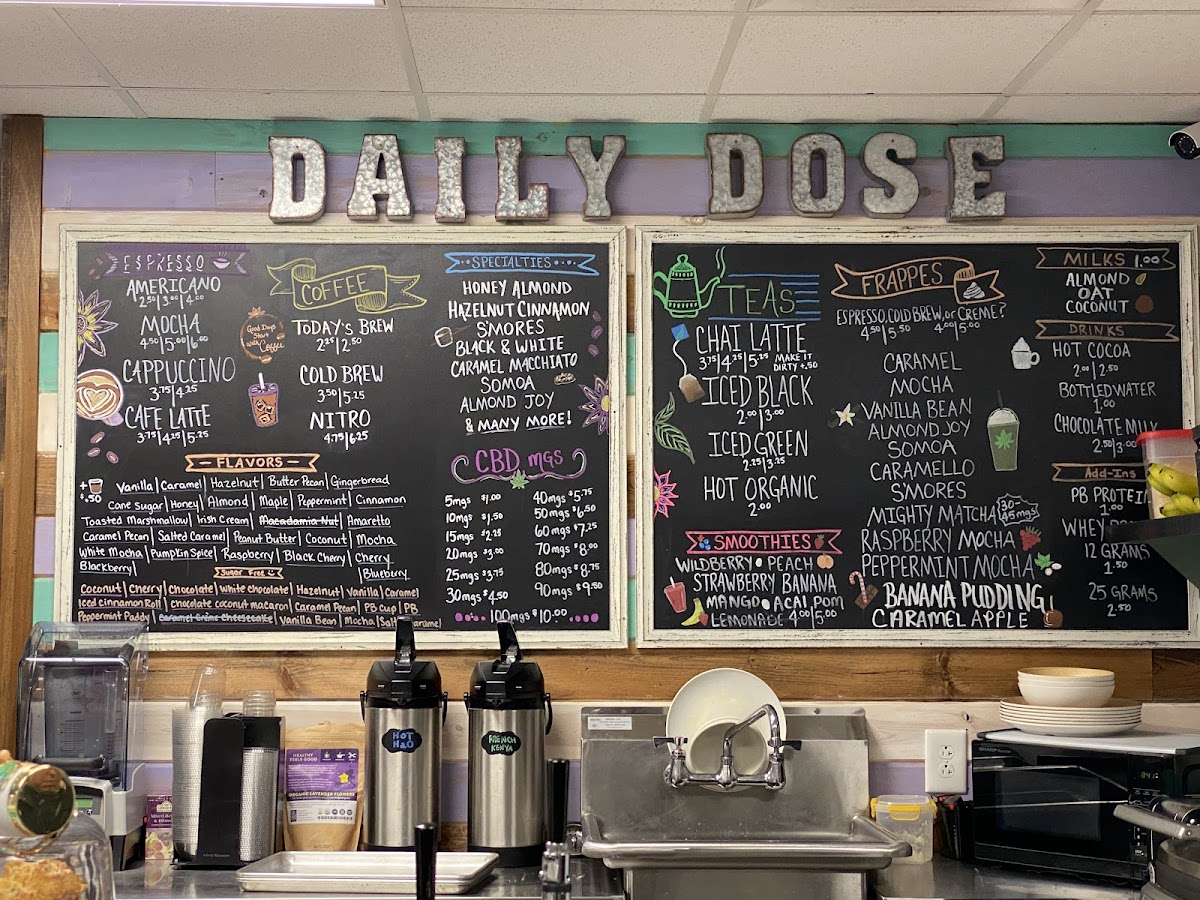 DAILY DOSE
ESPRESSO
AMERICANO
2.50|3.00|4.00
MOCHA
4.50|5.00|6.00
CAPPUCCINO
3.75|4.25
CAFE LATTE
3.75|4.25|5.25
COFFEE
Good Days Start with Coffee
TODAY'S BREW
2.25|2.50
COLD BREW
3.50|5.25
NITRO
4.75|6.25
FLAVORS
+ .50
Vanilla | Caramel | Hazelnut | Butter Pecan | Gingerbread
Cane Sugar | Honey | Almond | Maple | Peppermint | Cinnamon
Toasted Marshmallow | Irish Cream | Macadamia Nut | Amaretto
Caramel Pecan | Salted Caramel | Peanut Butter | Coconut | Mocha
White Mocha | Pumpkin Spice | Raspberry | Black Cherry | Cherry
Blackberry | Blueberry
Sugar Free
Coconut | Cherry | Chocolate | White Chocolate | Hazelnut | Vanilla | Caramel
Iced Cinnamon Roll | Chocolate coconut macaron | Caramel Pecan | PB Cup | PB
Peppermint Paddy | Caramel Crème Cheesecake | Vanilla Bean | Mocha | Salt Caramel
SPECIALTIES
HONEY ALMOND
HAZELNUT CINNAMON
S'MORES
BLACK & WHITE
CARAMEL MACCHIATO
SOMOA
ALMOND JOY
& MANY MORE!
CBD MGS
5mgs $1.00
10mgs $1.50
15mgs $2.25
20mgs $3.00
25mgs $3.75
30mgs $4.50
40mgs $5.75
50mgs $6.50
60mgs $7.25
70mgs $8.00
80mgs $8.75
90mgs $9.50
100mgs $10.00
TEAS
CHAI LATTE
3.75|4.25|5.25 MAKE IT DIRTY +.50
ICED BLACK
2.00|3.00
ICED GREEN
2.25|3.25
HOT ORGANIC
2.00
SMOOTHIES
WILDBERRY • PEACH
STRAWBERRY BANANA
MANGO • ACAI POM
LEMONADE 4.00|5.00
FRAPPES
ESPRESSO, COLD BREW, or CREME?
4.50|5.50 4.00|5.00
CARAMEL
MOCHA
VANILLA BEAN
ALMOND JOY
SOMOA
CARAMELLO
S'MORES
MIGHTY MATCHA
RASPBERRY MOCHA
PEPPERMINT MOCHA
BANANA PUDDING
CARAMEL APPLE
MILKS 1.00
ALMOND
OAT
COCONUT
DRINKS
HOT COCOA
2.00|2.50
BOTTLED WATER
1.00
CHOCOLATE MILK
2.50|3.00
Add-Ins
PB PROTEIN
1.00
WHEY
12 GRAMS
1.50
25 GRAMS
2.50
HOT H2O
FRENCH KENYA
HEALTHY
FEELS GOOD
ORGANIC LAVENDER FLOWERS
SHARP